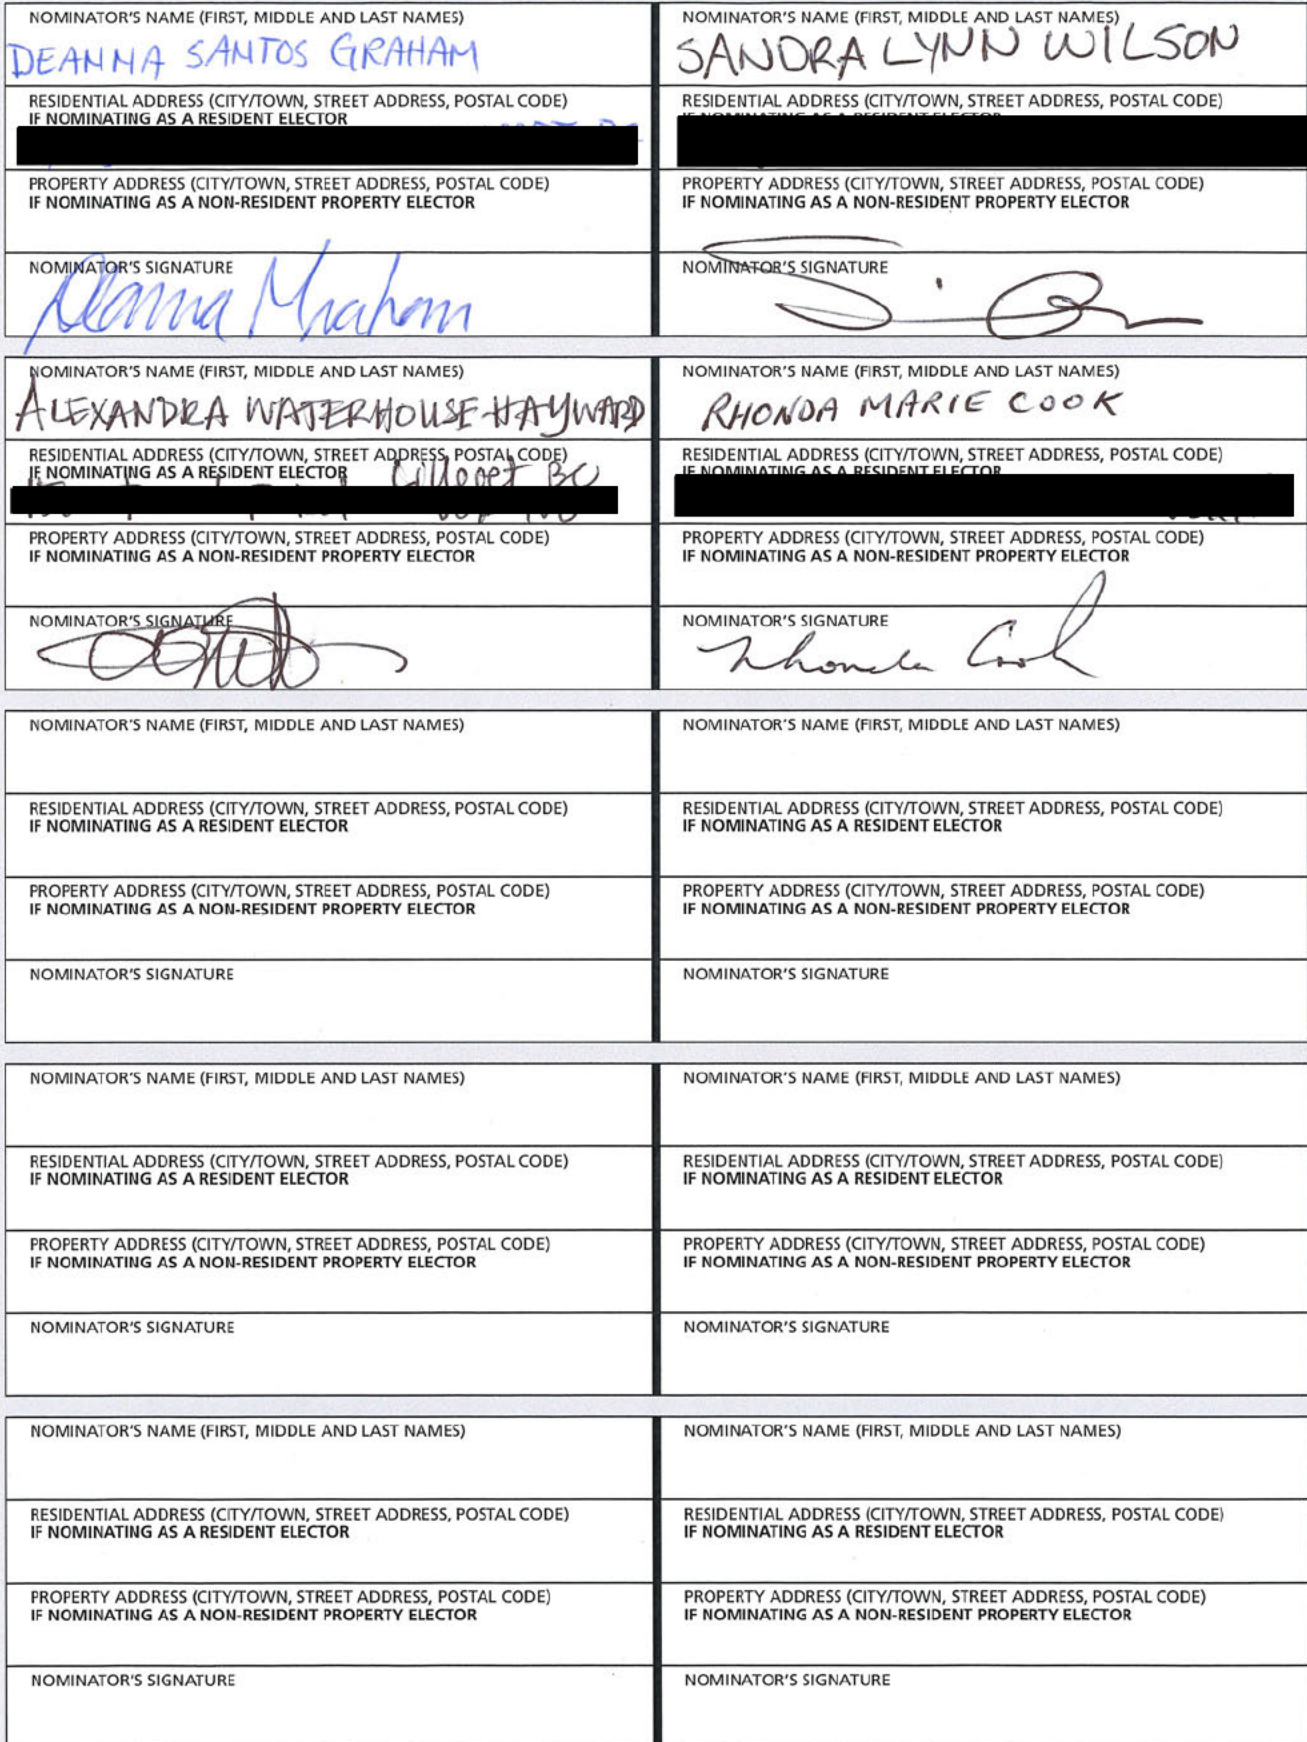 NOMINATOR'S NAME (FIRST, MIDDLE AND LAST NAMES)
DEANNA SANTOS GRAHAM
RESIDENTIAL ADDRESS (CITY/TOWN, STREET ADDRESS, POSTAL CODE)
IF NOMINATING AS A RESIDENT ELECTOR
PROPERTY ADDRESS (CITY/TOWN, STREET ADDRESS, POSTAL CODE)
IF NOMINATING AS A NON-RESIDENT PROPERTY ELECTOR
NOMINATOR'S SIGNATURE
Deanna Graham
NOMINATOR'S NAME (FIRST, MIDDLE AND LAST NAMES)
SANDRA LYNN WILSON
RESIDENTIAL ADDRESS (CITY/TOWN, STREET ADDRESS, POSTAL CODE)
PROPERTY ADDRESS (CITY/TOWN, STREET ADDRESS, POSTAL CODE)
IF NOMINATING AS A NON-RESIDENT PROPERTY ELECTOR
NOMINATOR'S SIGNATURE
NOMINATOR'S NAME (FIRST, MIDDLE AND LAST NAMES)
ALEXANDRA WATERHOUSE-HAYWARD
RESIDENTIAL ADDRESS (CITY/TOWN, STREET ADDRESS, POSTAL CODE)
IF NOMINATING AS A RESIDENT ELECTOR
Lillooet BC
PROPERTY ADDRESS (CITY/TOWN, STREET ADDRESS, POSTAL CODE)
IF NOMINATING AS A NON-RESIDENT PROPERTY ELECTOR
NOMINATOR'S SIGNATURE
NOMINATOR'S NAME (FIRST, MIDDLE AND LAST NAMES)
RHONDA MARIE COOK
RESIDENTIAL ADDRESS (CITY/TOWN, STREET ADDRESS, POSTAL CODE)
IF NOMINATING AS A RESIDENT ELECTOR
PROPERTY ADDRESS (CITY/TOWN, STREET ADDRESS, POSTAL CODE)
IF NOMINATING AS A NON-RESIDENT PROPERTY ELECTOR
NOMINATOR'S SIGNATURE
Rhonda Cook
NOMINATOR'S NAME (FIRST, MIDDLE AND LAST NAMES)
RESIDENTIAL ADDRESS (CITY/TOWN, STREET ADDRESS, POSTAL CODE)
IF NOMINATING AS A RESIDENT ELECTOR
PROPERTY ADDRESS (CITY/TOWN, STREET ADDRESS, POSTAL CODE)
IF NOMINATING AS A NON-RESIDENT PROPERTY ELECTOR
NOMINATOR'S SIGNATURE
NOMINATOR'S NAME (FIRST, MIDDLE AND LAST NAMES)
RESIDENTIAL ADDRESS (CITY/TOWN, STREET ADDRESS, POSTAL CODE)
IF NOMINATING AS A RESIDENT ELECTOR
PROPERTY ADDRESS (CITY/TOWN, STREET ADDRESS, POSTAL CODE)
IF NOMINATING AS A NON-RESIDENT PROPERTY ELECTOR
NOMINATOR'S SIGNATURE
NOMINATOR'S NAME (FIRST, MIDDLE AND LAST NAMES)
RESIDENTIAL ADDRESS (CITY/TOWN, STREET ADDRESS, POSTAL CODE)
IF NOMINATING AS A RESIDENT ELECTOR
PROPERTY ADDRESS (CITY/TOWN, STREET ADDRESS, POSTAL CODE)
IF NOMINATING AS A NON-RESIDENT PROPERTY ELECTOR
NOMINATOR'S SIGNATURE
NOMINATOR'S NAME (FIRST, MIDDLE AND LAST NAMES)
RESIDENTIAL ADDRESS (CITY/TOWN, STREET ADDRESS, POSTAL CODE)
IF NOMINATING AS A RESIDENT ELECTOR
PROPERTY ADDRESS (CITY/TOWN, STREET ADDRESS, POSTAL CODE)
IF NOMINATING AS A NON-RESIDENT PROPERTY ELECTOR
NOMINATOR'S SIGNATURE
NOMINATOR'S NAME (FIRST, MIDDLE AND LAST NAMES)
RESIDENTIAL ADDRESS (CITY/TOWN, STREET ADDRESS, POSTAL CODE)
IF NOMINATING AS A RESIDENT ELECTOR
PROPERTY ADDRESS (CITY/TOWN, STREET ADDRESS, POSTAL CODE)
IF NOMINATING AS A NON-RESIDENT PROPERTY ELECTOR
NOMINATOR'S SIGNATURE
NOMINATOR'S NAME (FIRST, MIDDLE AND LAST NAMES)
RESIDENTIAL ADDRESS (CITY/TOWN, STREET ADDRESS, POSTAL CODE)
IF NOMINATING AS A RESIDENT ELECTOR
PROPERTY ADDRESS (CITY/TOWN, STREET ADDRESS, POSTAL CODE)
IF NOMINATING AS A NON-RESIDENT PROPERTY ELECTOR
NOMINATOR'S SIGNATURE